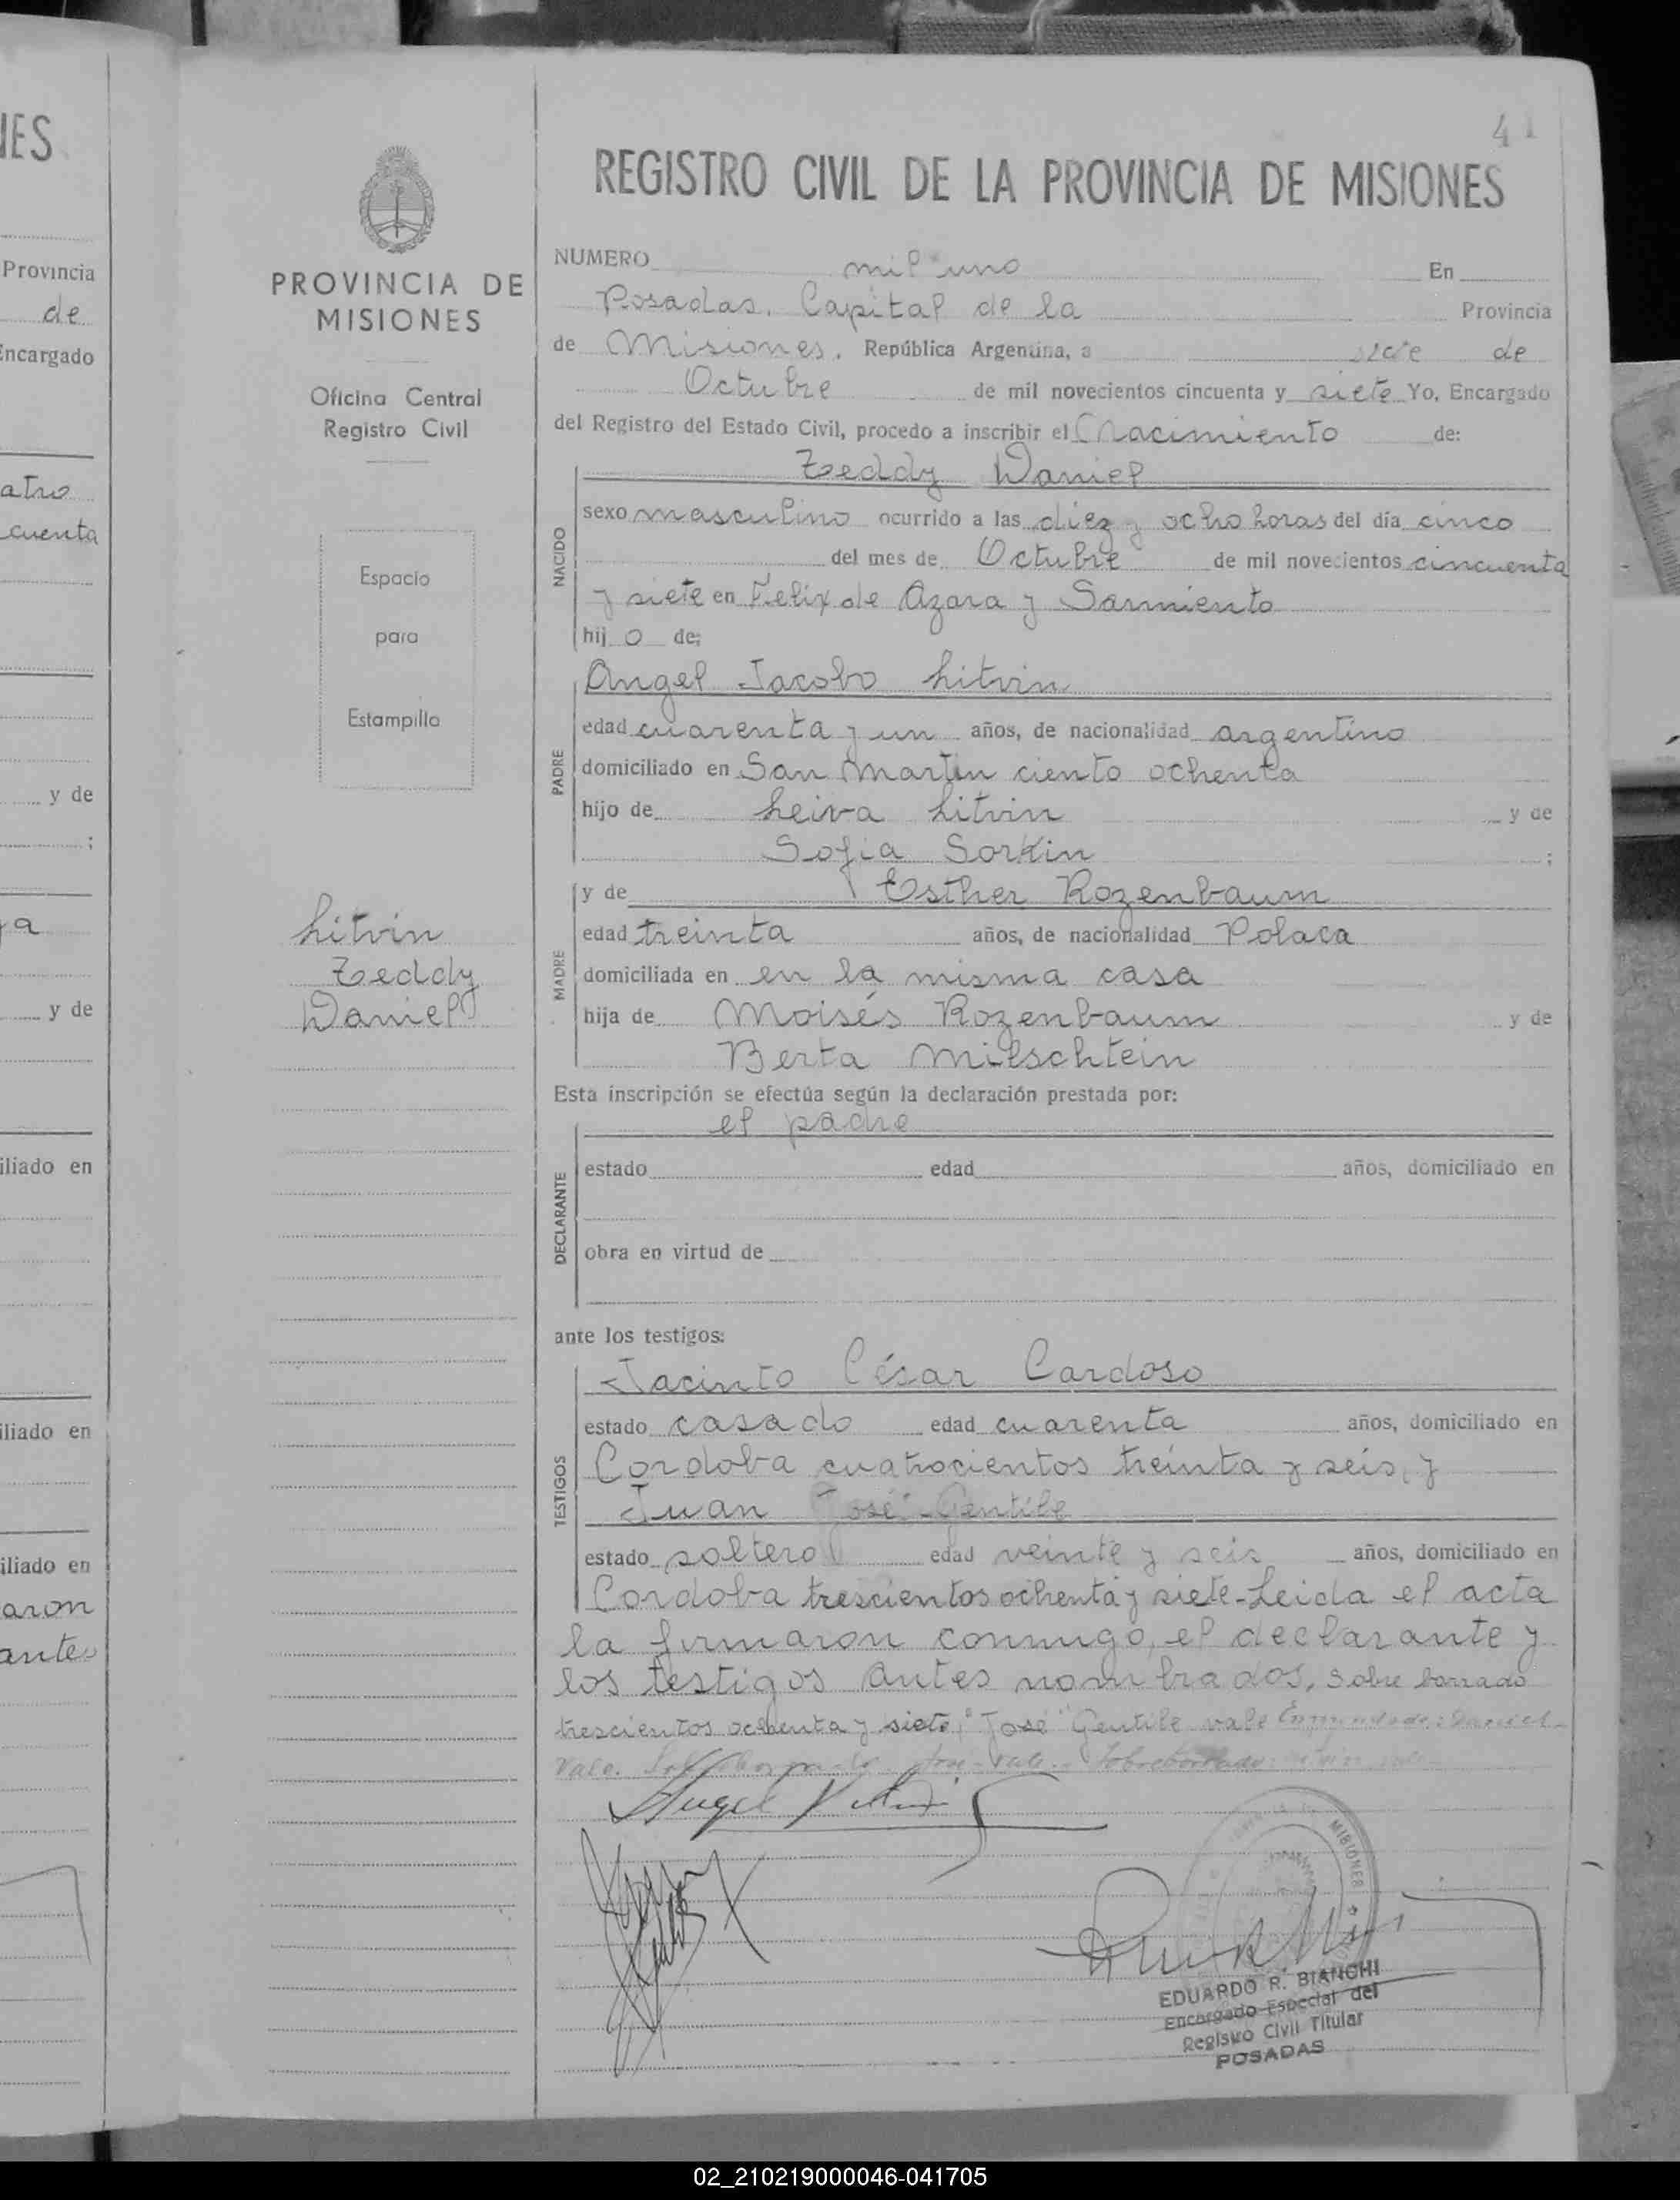 IES
Provincia
de
Encargado
atro
cuenta
y de
;
ya
y de
iliado en
iliado en
iliado en
aron
antes
PROVINCIA DE
MISIONES
Oficina Central
Registro Civil
Espacio
para
Estampilla
Litvin
Teddy
Daniel
41
REGISTRO CIVIL DE LA PROVINCIA DE MISIONES
NUMERO mil uno En
Posadas, Capital de la Provincia
de Misiones, República Argentina, a siete de
Octubre de mil novecientos cincuenta y siete Yo, Encargado
del Registro del Estado Civil, procedo a inscribir el Nacimiento de:
Teddy Daniel
NACIDO
sexo masculino ocurrido a las diez y ocho horas del día cinco
del mes de Octubre de mil novecientos cincuenta
y siete en Felix de Azara y Sarmiento
hijo de:
Angel Jacobo Litvin
PADRE
edad cuarenta y un años, de nacionalidad argentino
domiciliado en San Martin ciento ochenta
hijo de Leiva Litvin y de
Sofia Sorkin ;
y de Esther Rozenbaum
MADRE
edad treinta años, de nacionalidad Polaca
domiciliada en en la misma casa
hija de Moisés Rozenbaum y de
Berta Milschtein
Esta inscripción se efectúa según la declaración prestada por:
el padre
DECLARANTE
estado edad años, domiciliado en
obra en virtud de
ante los testigos:
Jacinto César Cardoso
TESTIGOS
estado casado edad cuarenta años, domiciliado en
Cordoba cuatrocientos treinta y seis, y
Juan José Gentile
estado soltero edad veinte y seis años, domiciliado en
Cordoba trescientos ochenta y siete - Leida el acta
la firmaron conmigo, el declarante y
los testigos antes nombrados, Sobre borrado
trescientos ochenta y siete, "José" Gentile vale Enmendado: Daniel -
Vale. José - vale - Sobreborrado:
Angel Litvin
MISIONES
EDUARDO R. BIANCHI
Encargado Especial del
Registro Civil Titular
POSADAS
02_210219000046-041705